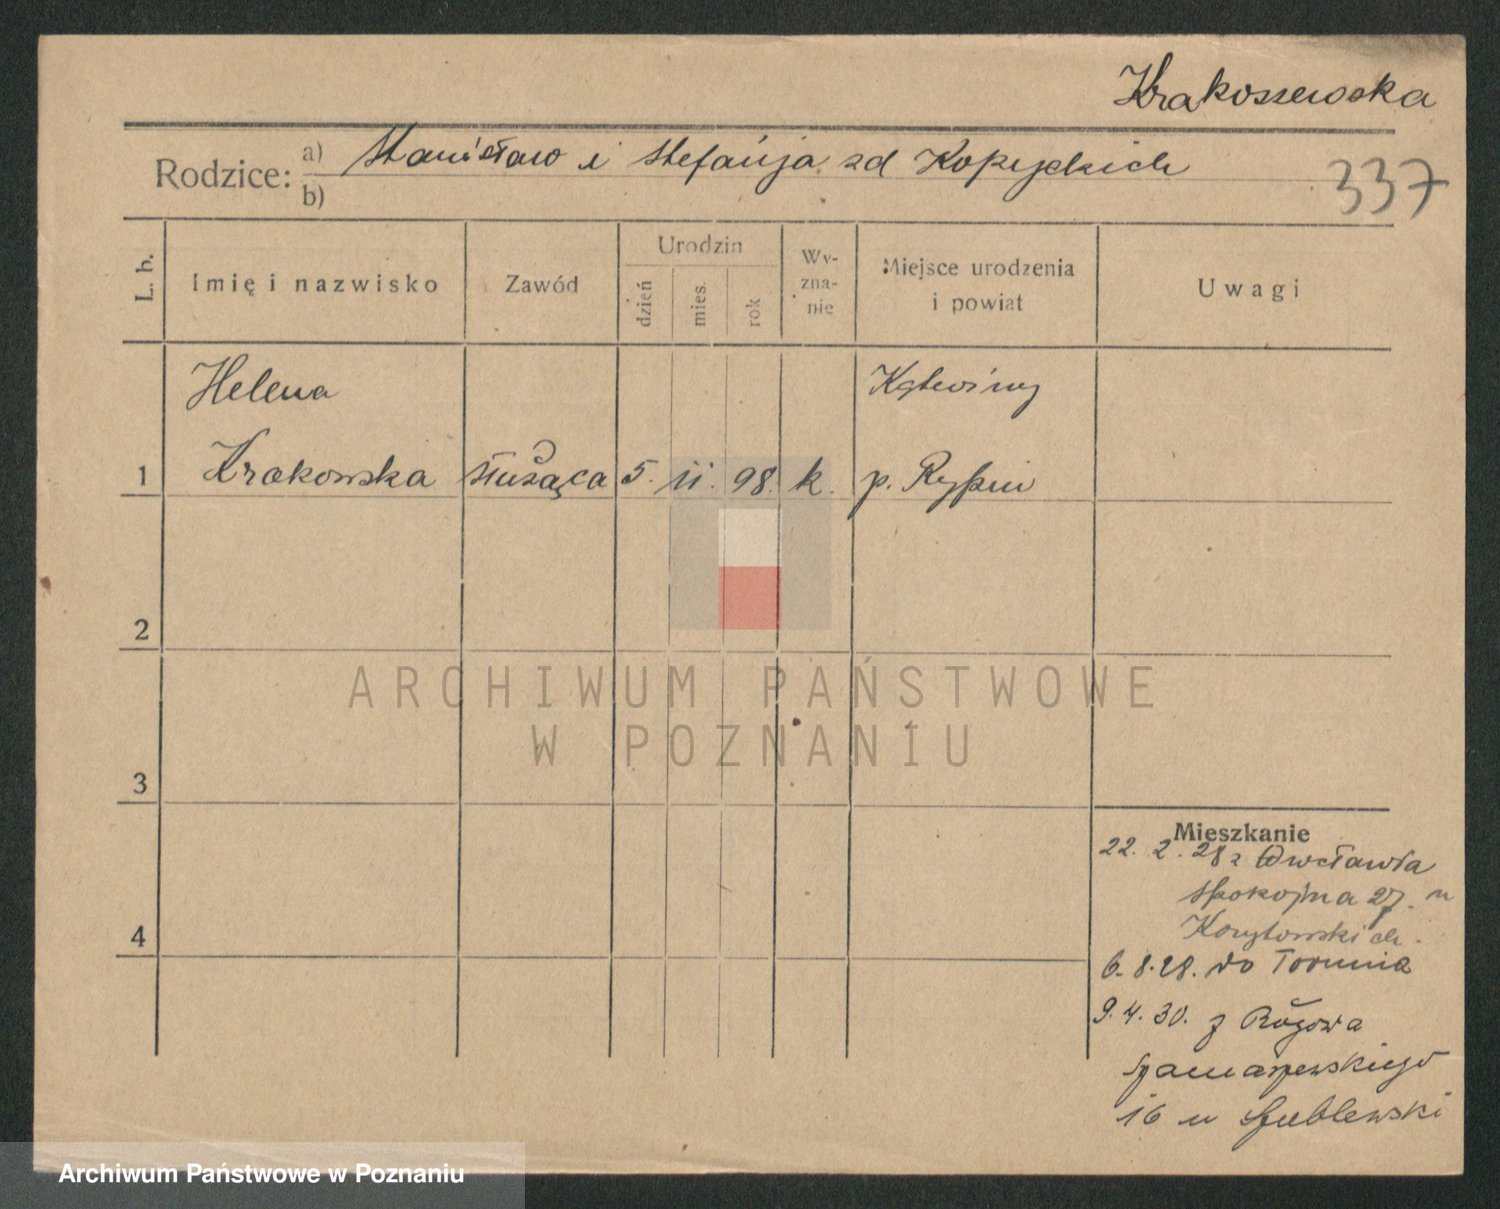 Krakoszewska
Rodzice: a) Stanisław i Stefanja zd
b)
337
L. b.
Imię i nazwisko
Zawód
Urodzin
dzień
mies.
rok
Wy-
zna-
nie
Miejsce urodzenia
i powiat
Uwagi
Helena
1 Krakowska służąca 5. 11. 98. k. p. Rypin
2
3
4
ARCHIWUM PAŃSTWOWE
W POZNANIU
Mieszkanie
22. 2. 28 z
Spokojna 27. u
Korytowskich.
6. 8. 28. do Torunia
9. 4. 30. z Rogowa
Szamarzewskiego
16 u
Archiwum Państwowe w Poznaniu